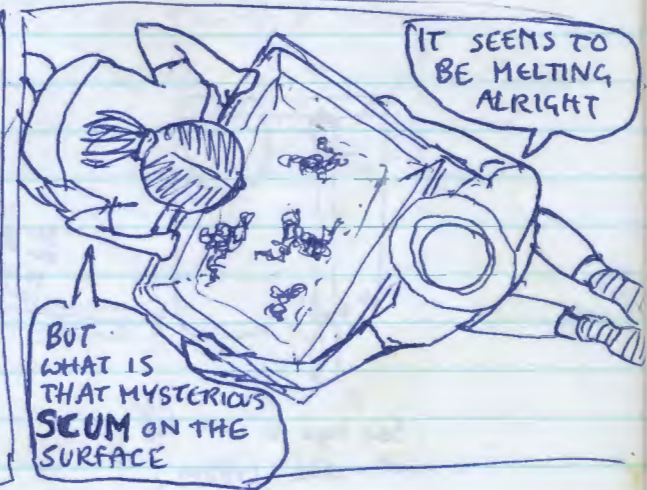 IT SEEMS TO
BE MELTING
ALRIGHT
BUT
WHAT IS
THAT MYSTERIOUS
SCUM ON THE
SURFACE